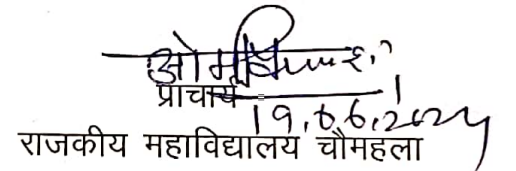 प्राचार्य
19.06.2024
राजकीय महाविद्यालय चौमहला